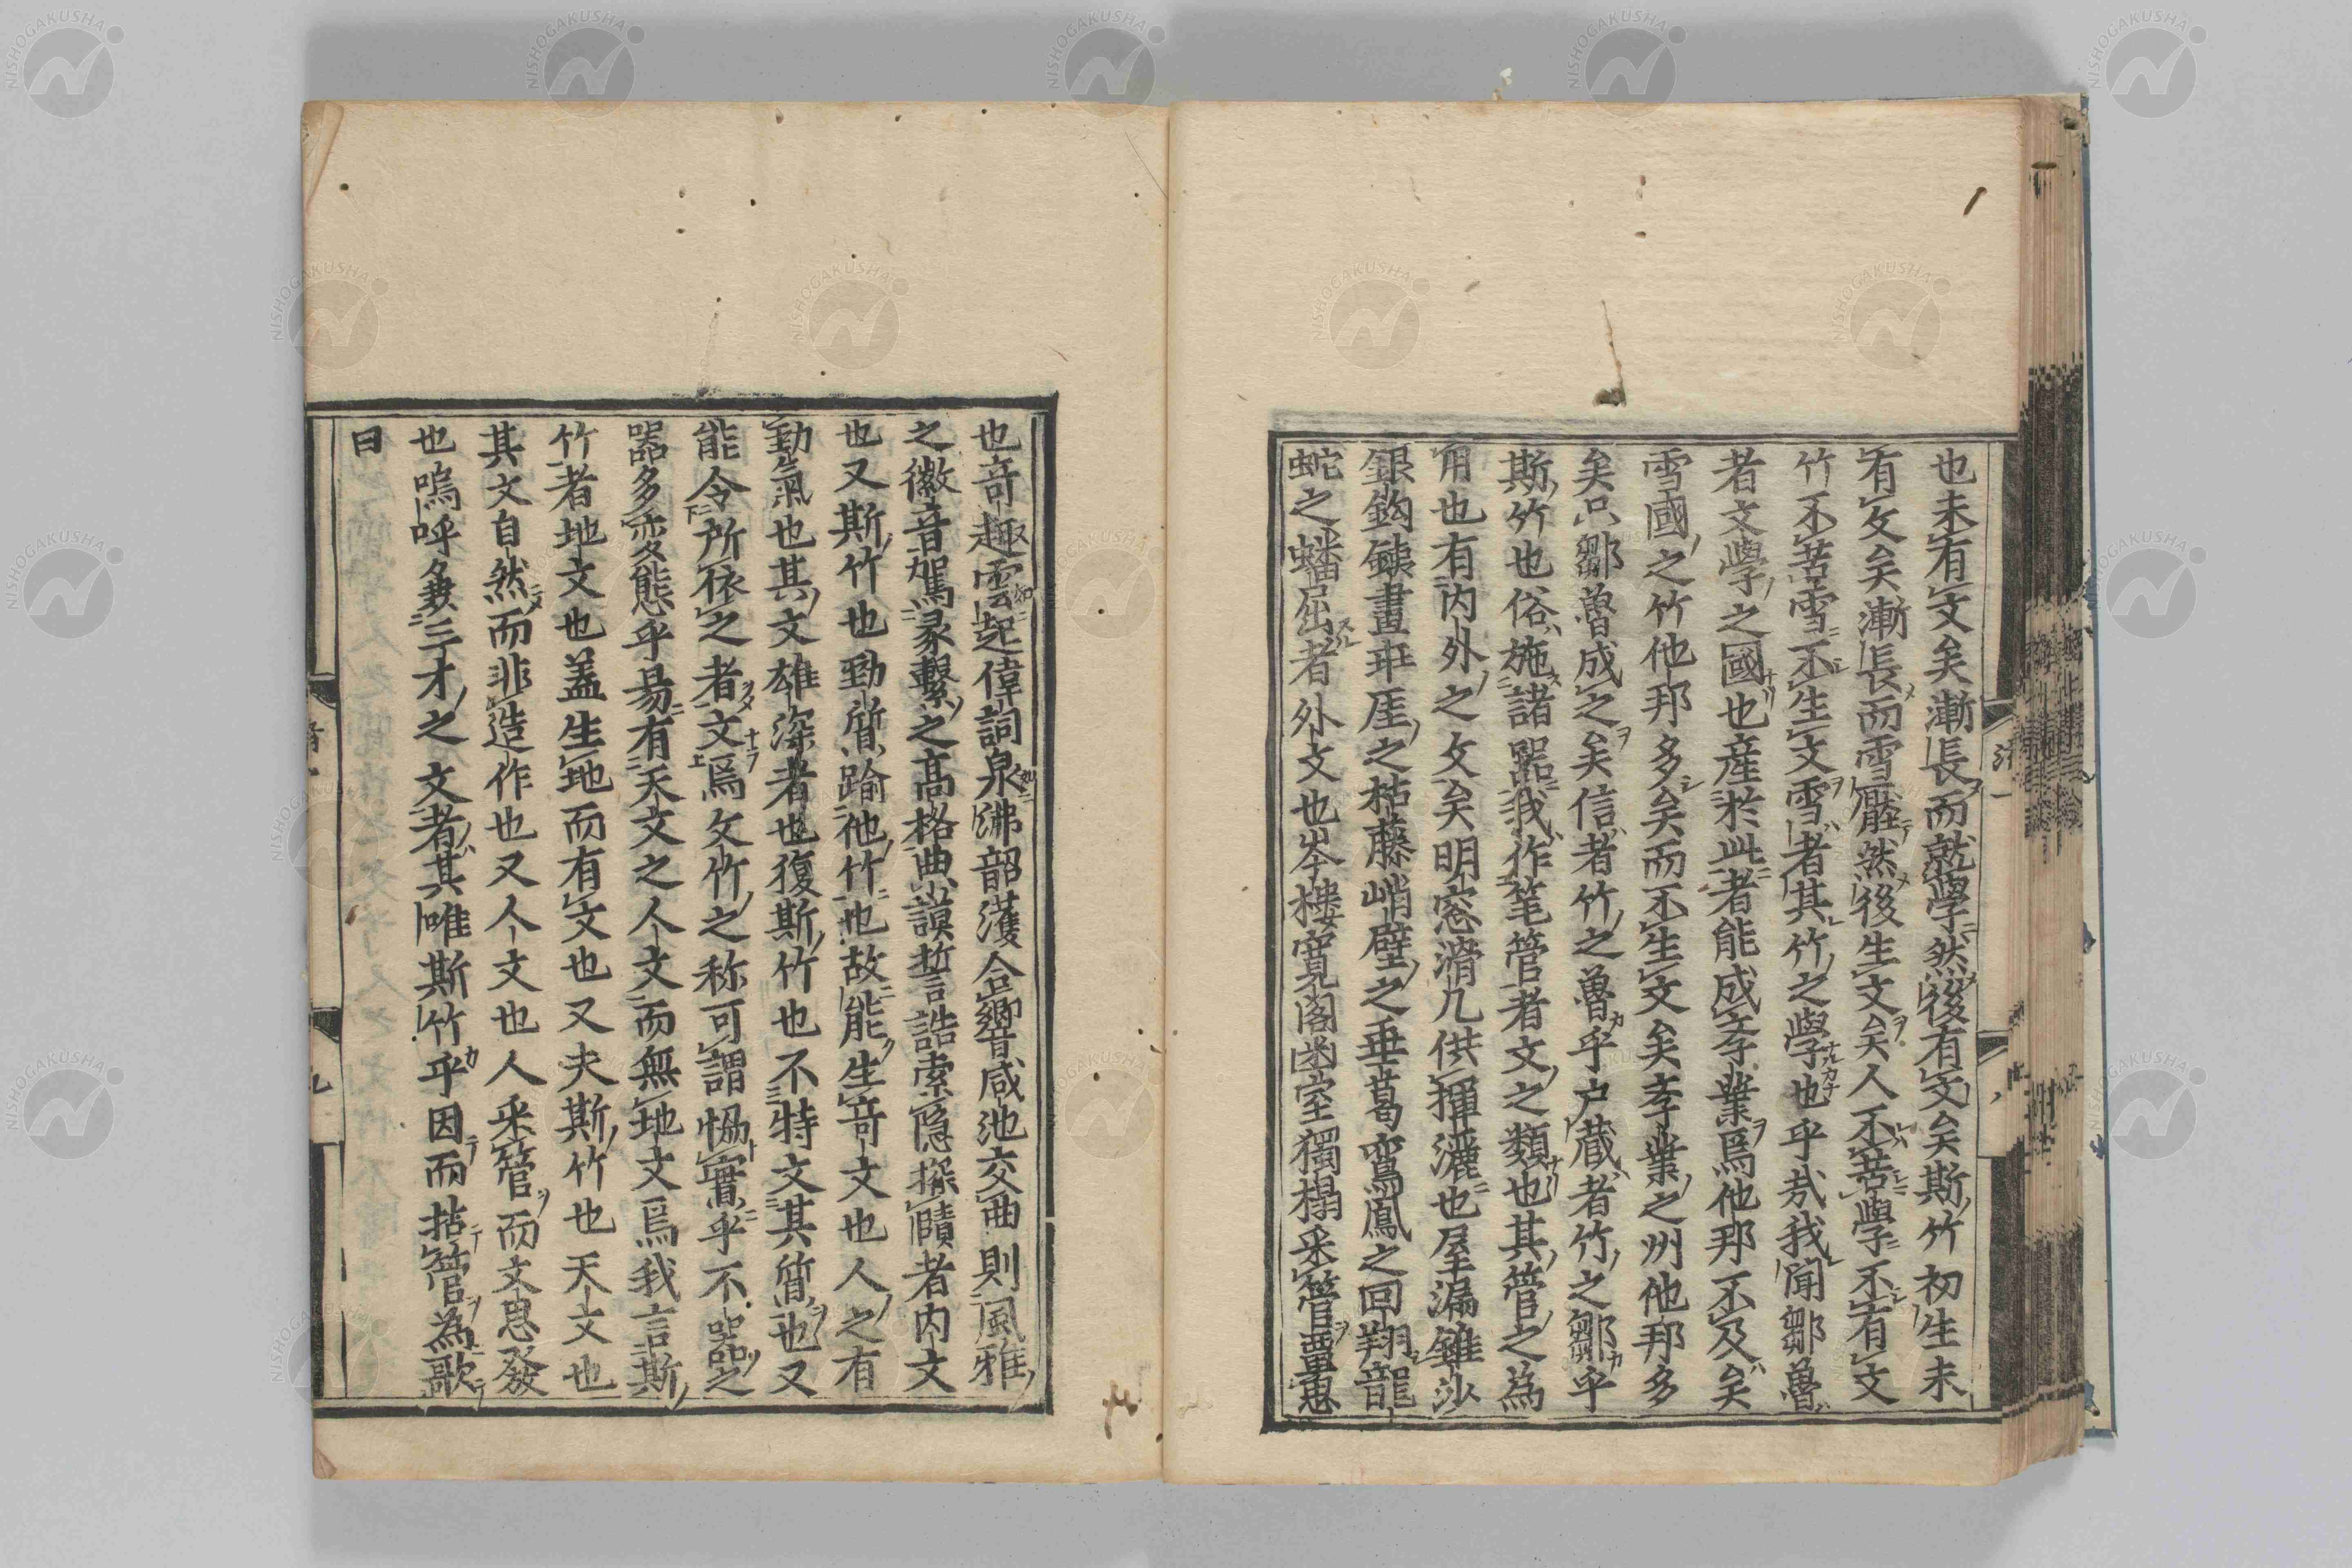 也未有文矣漸長而就學然後有文矣斯竹初生未
有文矣漸長而雪壓然後生文矣人不苦學不有文
竹不苦雪不生文雪者其竹之學也乎哉我聞鄒魯
者文學之國也産於此者能成孝業焉他邦不及矣
雪國之竹他邦多矣而不生文矣孝業之州他邦多
矣只鄒魯成之矣信者竹之魯乎戸蔵者竹之鄒乎
斯竹也俗施諸器我作笔管者文之類也其管之為
用也有内外之文矣明窓滑几供揮灑也屋漏錐沙
銀鈎銕畫班厓之枯藤峭壁之垂葛鸞鳳之回翔龍
蛇之蟠屈者外文也岑樓寛閣密室獨榻采管覃思
也竒趣雲起偉詞泉沸韶濩合響咸池交曲則風雅
之徽音駕彖繫之高格典謨誓誥索隐探賾者内文
也又斯竹也勁質踰他竹也故能生竒文也人之有
勁氣也其文雄深者也復斯竹也不特文其質也又
能令所依之者文焉文竹之称可謂恊實乎不器之
器多変態乎易有天文之人文而無地文焉我言斯
竹者地文也盖生地而有文也又夫斯竹也天文也
其文自然而非造作也又人文也人采管而文思發
也嗚呼兼三才之文者其唯斯竹乎因而拈管為歌
曰